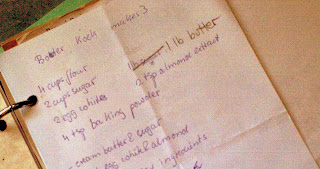 Boter Koek makes 3
4 cups flour
2 cups sugar
2 egg white
4 tsp baking powder
1 lb butter
2 tsp almond extract
cream butter & sugar
egg white & almond
ingredients